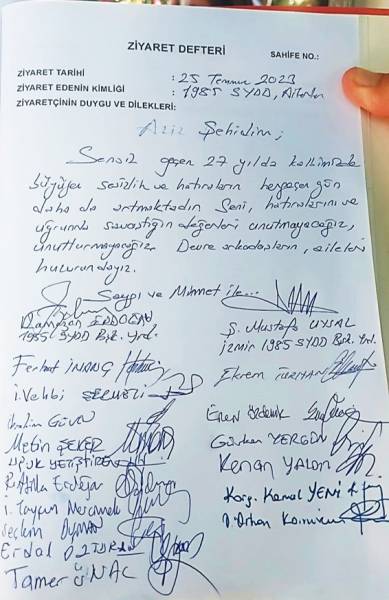 ZİYARET DEFTERİ
SAHİFE NO.:
ZİYARET TARİHİ : 25 Temmuz 2023
ZİYARET EDENİN KİMLİĞİ : 1985 SYDD, Aileler
ZİYARETÇİNİN DUYGU VE DİLEKLERİ:
Aziz Şehidim;
Sensiz geçen 27 yılda kalbimizde
büyüyen sesizlik ve hatıraların hergeçen gün
daha da artmaktadır. Seni, hatıralarını ve
uğruna savaştığın değerleri unutmayacağız,
unutturmayacağız. Devre arkadaşların, aileleri
huzurundayız.
Saygı ve Minnet ile...
Ramazan ERDOĞAN
1985 SYDD Bşk. Yrd.
Ş. Mustafa UYSAL
İzmir 1985 SYDD Bşk. Yrd.
Ferhat İNANÇ
Ekrem TURHAN
İ. Vehbi
İbrahim Güven
Eren
Metin ŞEKER
Gürkan YERGÖK
Ufuk YETİŞTİREN
Kenan YALÇIN
R. Atilla Erdoğan
Korg. Kemal YENİ
İ. Tayyun
Orhan
Seçkin Duman
Erdal ÖZTURAN
Tamer ÜNAL